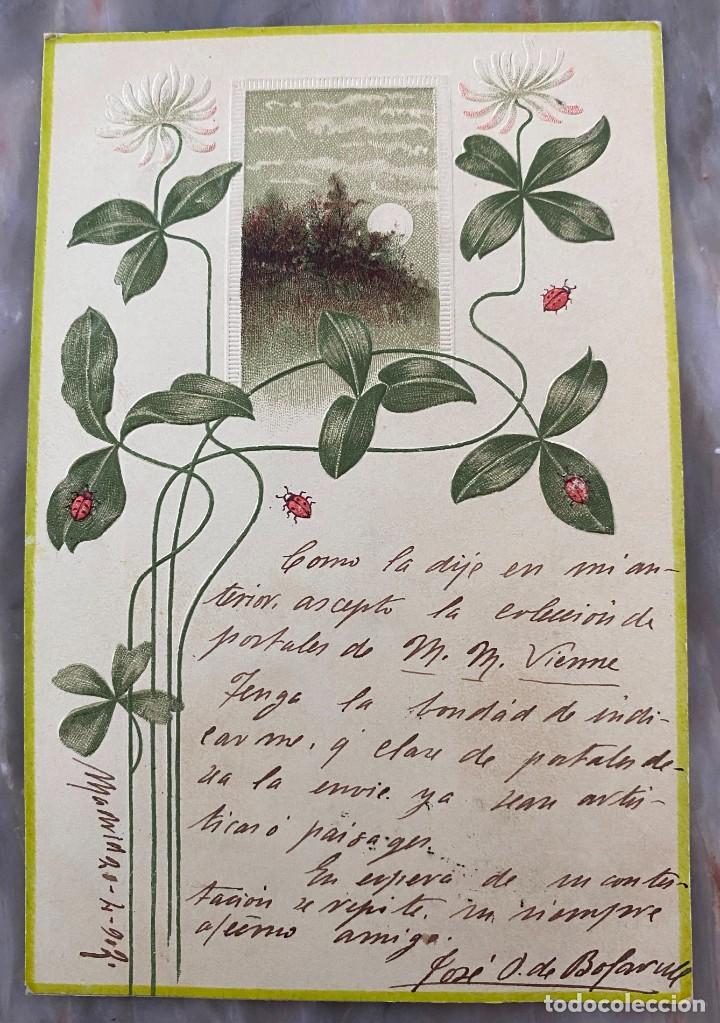 Como la dije en mi an-
terior, ascepto la colección de
portales de M. M. Vienne
Tenga la bondad de indi-
carme, q' clase de portales de-
sea la envie ya sean artis-
ticas ó paisages.
En espera de su contes-
tación se repite, su siempre
afécmo amigo.
José O. de
Madrid 20-4-902.
todocoleccion